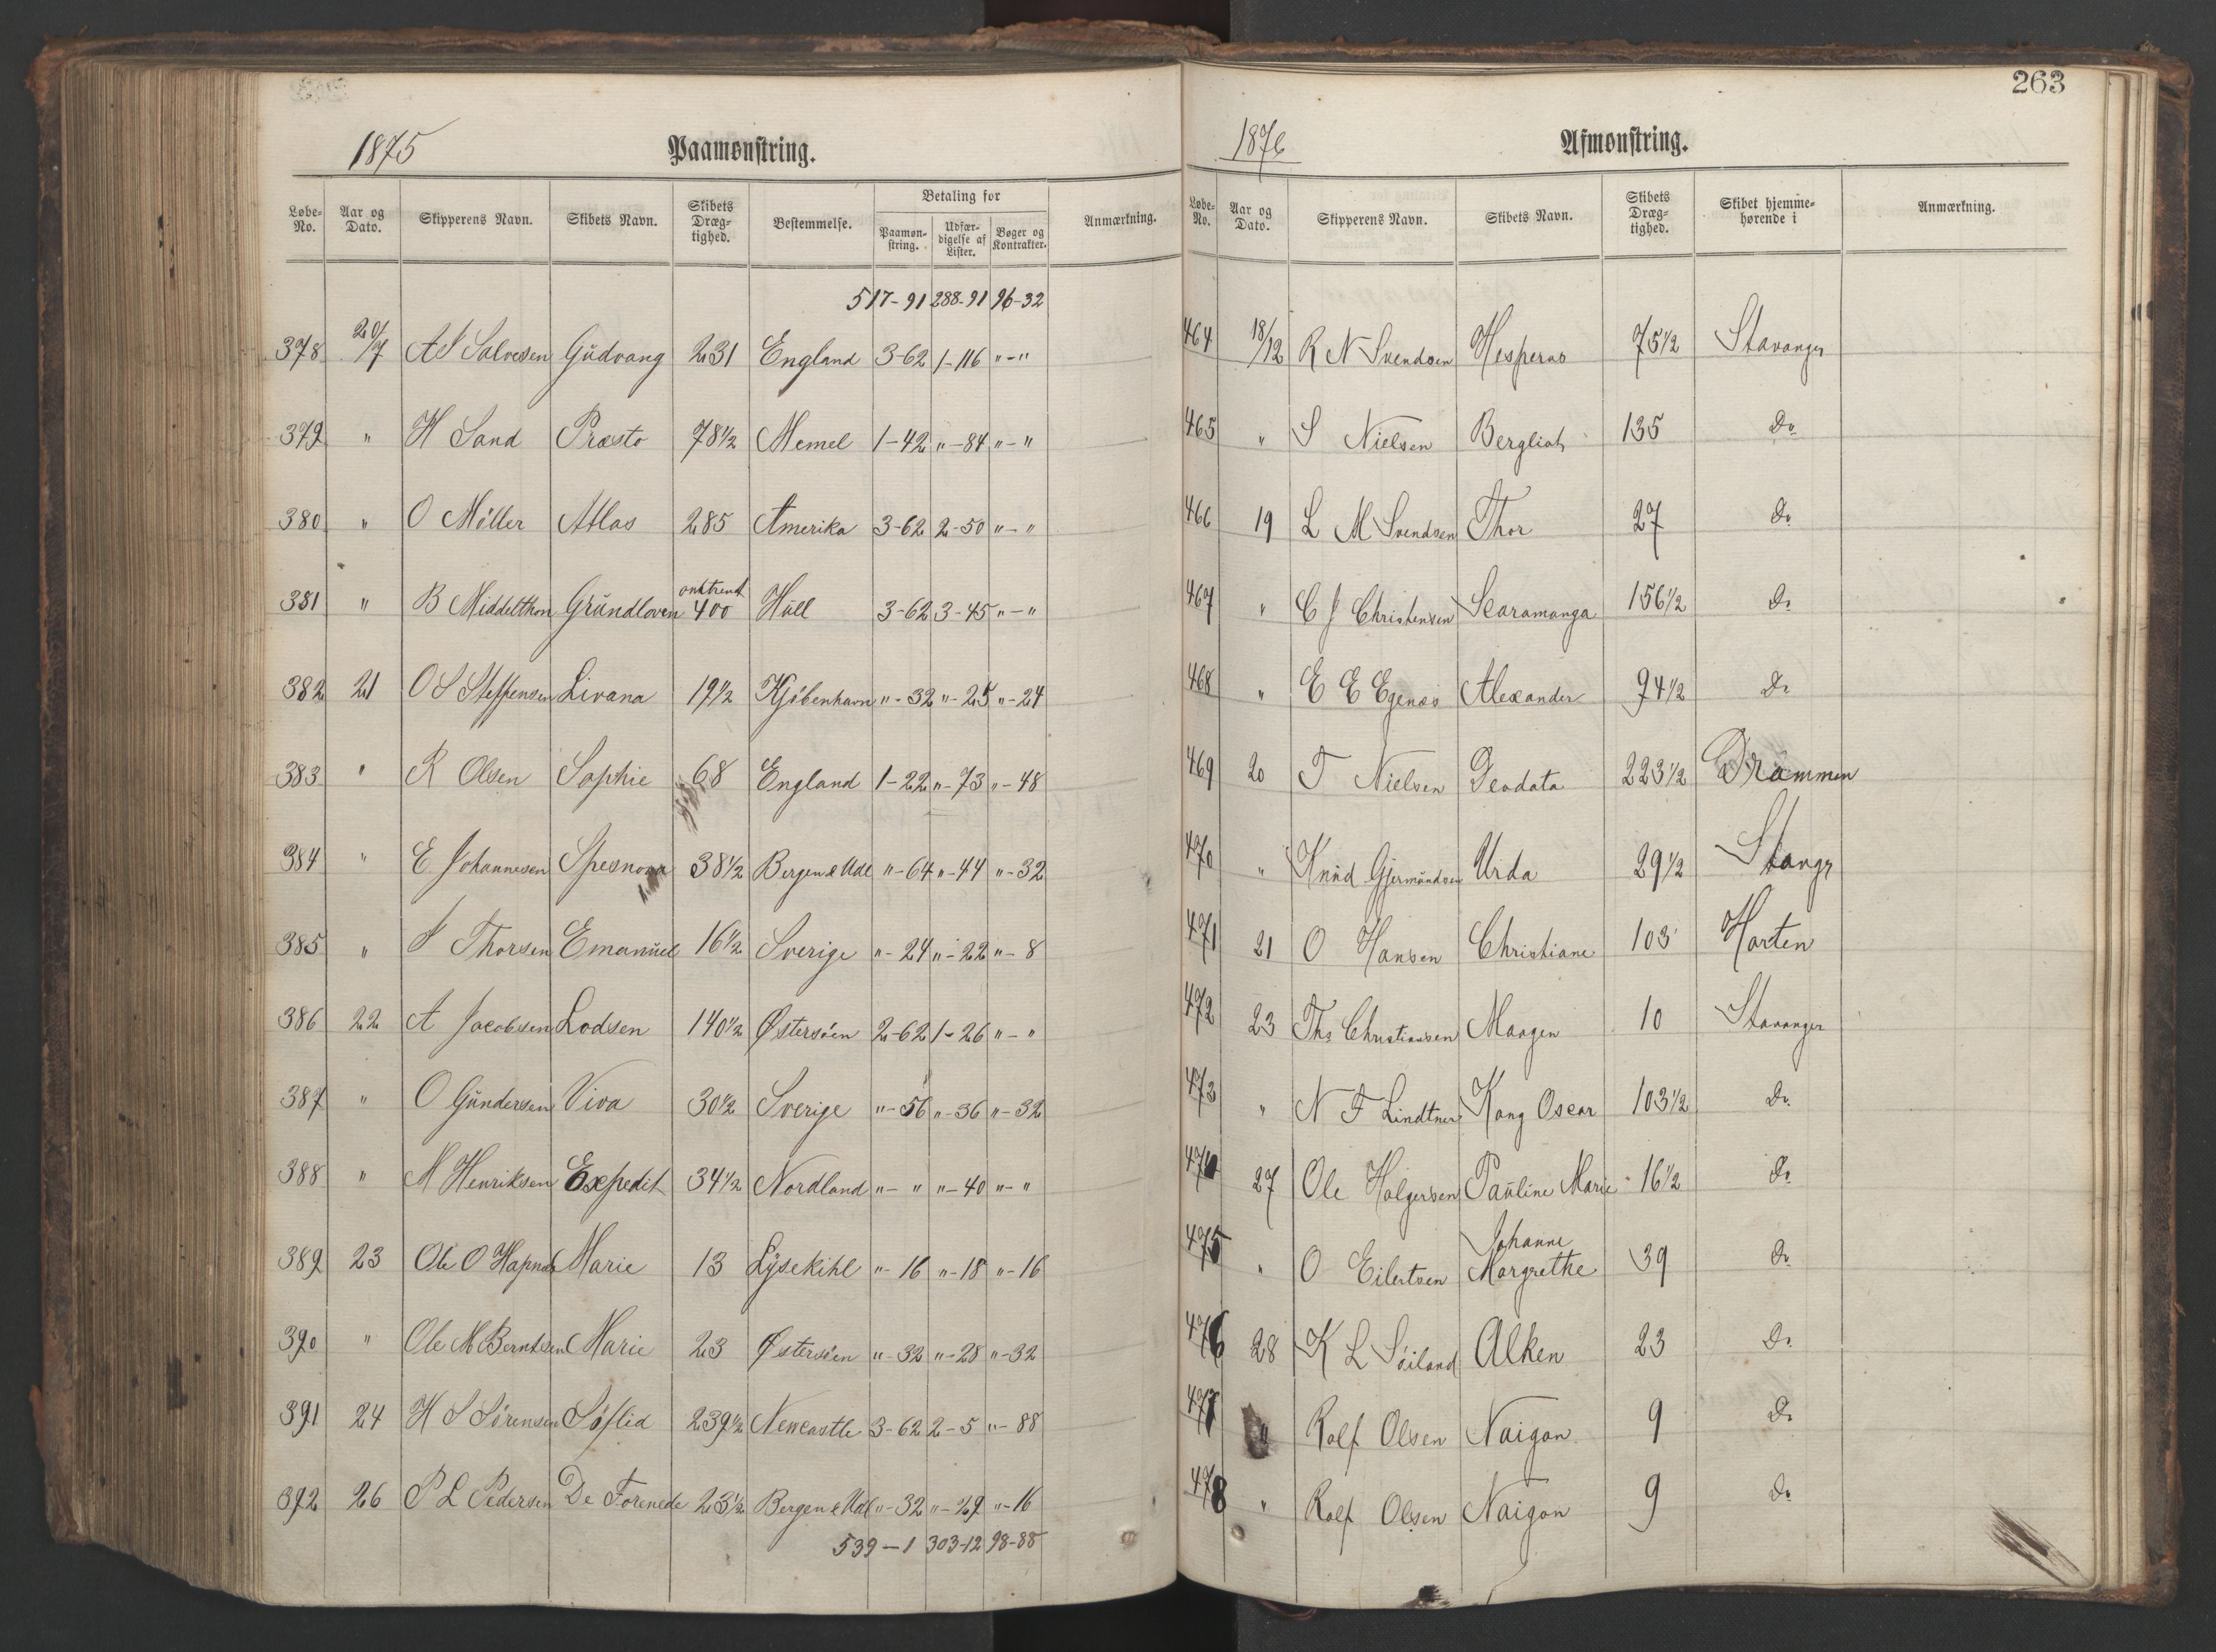 1875 Paamønstring.
Løbe-No. Aar og Dato. Skipperens Navn. Skibets Navn. Skibets Dræg-tighed. Bestemmelse. Betaling for Paamøn-string. Udfær-digelse af Lister. Bøger og Kontrakter. Anmærkning.
517-91 288-91 96-32
378 20/7 A S Salvesen Gudvang 231 England 3-62 1-116 "-"
379 " H Sand Præsto 78 1/2 Memel 1-42 "-84 "-"
380 " O Möller Atlas 285 Amerika 3-62 2-50 "-"
381 " B Middelthon Grundloven omtrent 400 Hull 3-62 3-45 "-"
382 21 O S Steffensen Livana 19 1/2 Kjöbenhavn "-32 "-25 "-24
383 " R Olsen Sophie 68 England 1-22 "-73 "-48
384 " E Johannesen Spesnova 38 1/2 Bergen & Udl "-64 "-44 "-32
385 " S Thorsen Emanuel 16 1/2 Sverige "-24 "-22 "-8
386 22 A Jacobsen Lodsen 140 1/2 Østersöen 2-62 1-26 "-"
387 " O Gundersen Viva 30 1/2 Sverige "-56 "-36 "-32
388 " M Henriksen Expedit 34 1/2 Nordland "-" "-40 "-"
389 23 Ole O Marie 13 Lysekihl "-16 "-18 "-16
390 " Ole M Berntsen Marie 23 Østersöen "-32 "-28 "-32
391 24 H S Sörensen Söflid 239 1/2 Newcastle 3-62 2-5 "-88
392 26 P L Pedersen De Forenede 23 1/2 Bergen & Udl "-32 "-29 "-16
539-1 303-12 98-88
263
1876 Afmønstring.
Løbe-No. Aar og Dato. Skipperens Navn. Skibets Navn. Skibets Dræg-tighed. Skibet hjemme-hørende i Anmærkning.
464 18/12 R N Svendsen Hesperus 75 1/2 Stavanger
465 " S Nielsen Bergliot 135 Do
466 19 L M Svendsen Thor 27 Do
467 " C J Christensen Scaramanga 156 1/2 Do
468 " E E Egenæs Alexander 94 1/2 Do
469 20 T Nielsen Deodata 223 1/2 Drammen
470 " Knud Gjermundsen Urda 29 1/2 Stangr
471 21 O Hansen Christiane 103 Horten
472 23 Ths Christiansen Maagen 10 Stavanger
473 " N F Lindtner Kong Oscar 103 1/2 Do
474 27 Ole Holgersen Pauline Marie 16 1/2 Do
475 " O Eilertsen Johanne Margrethe 39 Do
476 28 K L Söiland Alken 23 Do
477 " Rolf Olsen Naigon 9 Do
478 " Rolf Olsen Naigon 9 Do